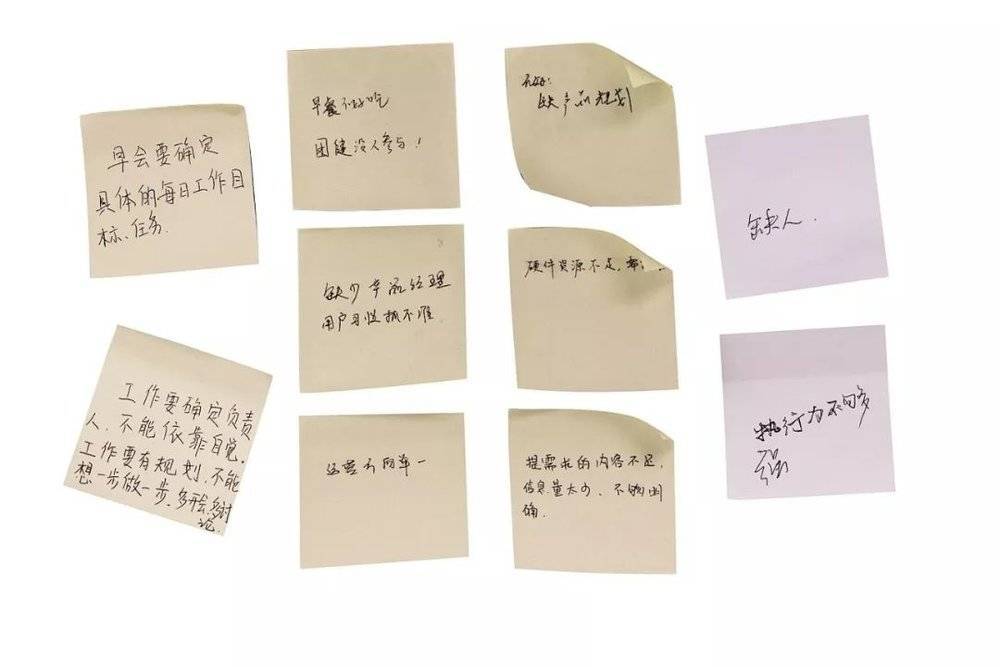 早会要确定
具体的每日工作目
标、任务.
工作要确定负责
人,不能依靠自觉.
工作要有规划,不能
想一步做一步,多开会多讨
论.
早餐不好吃
团建没人参与!
缺少产品经理
用户习性抓不准
运营方向单一
不好:
缺产品规划
硬件资源不足,
提需求的内容不足,
信息量太少、不够明
确.
缺人.
执行力不够多
强